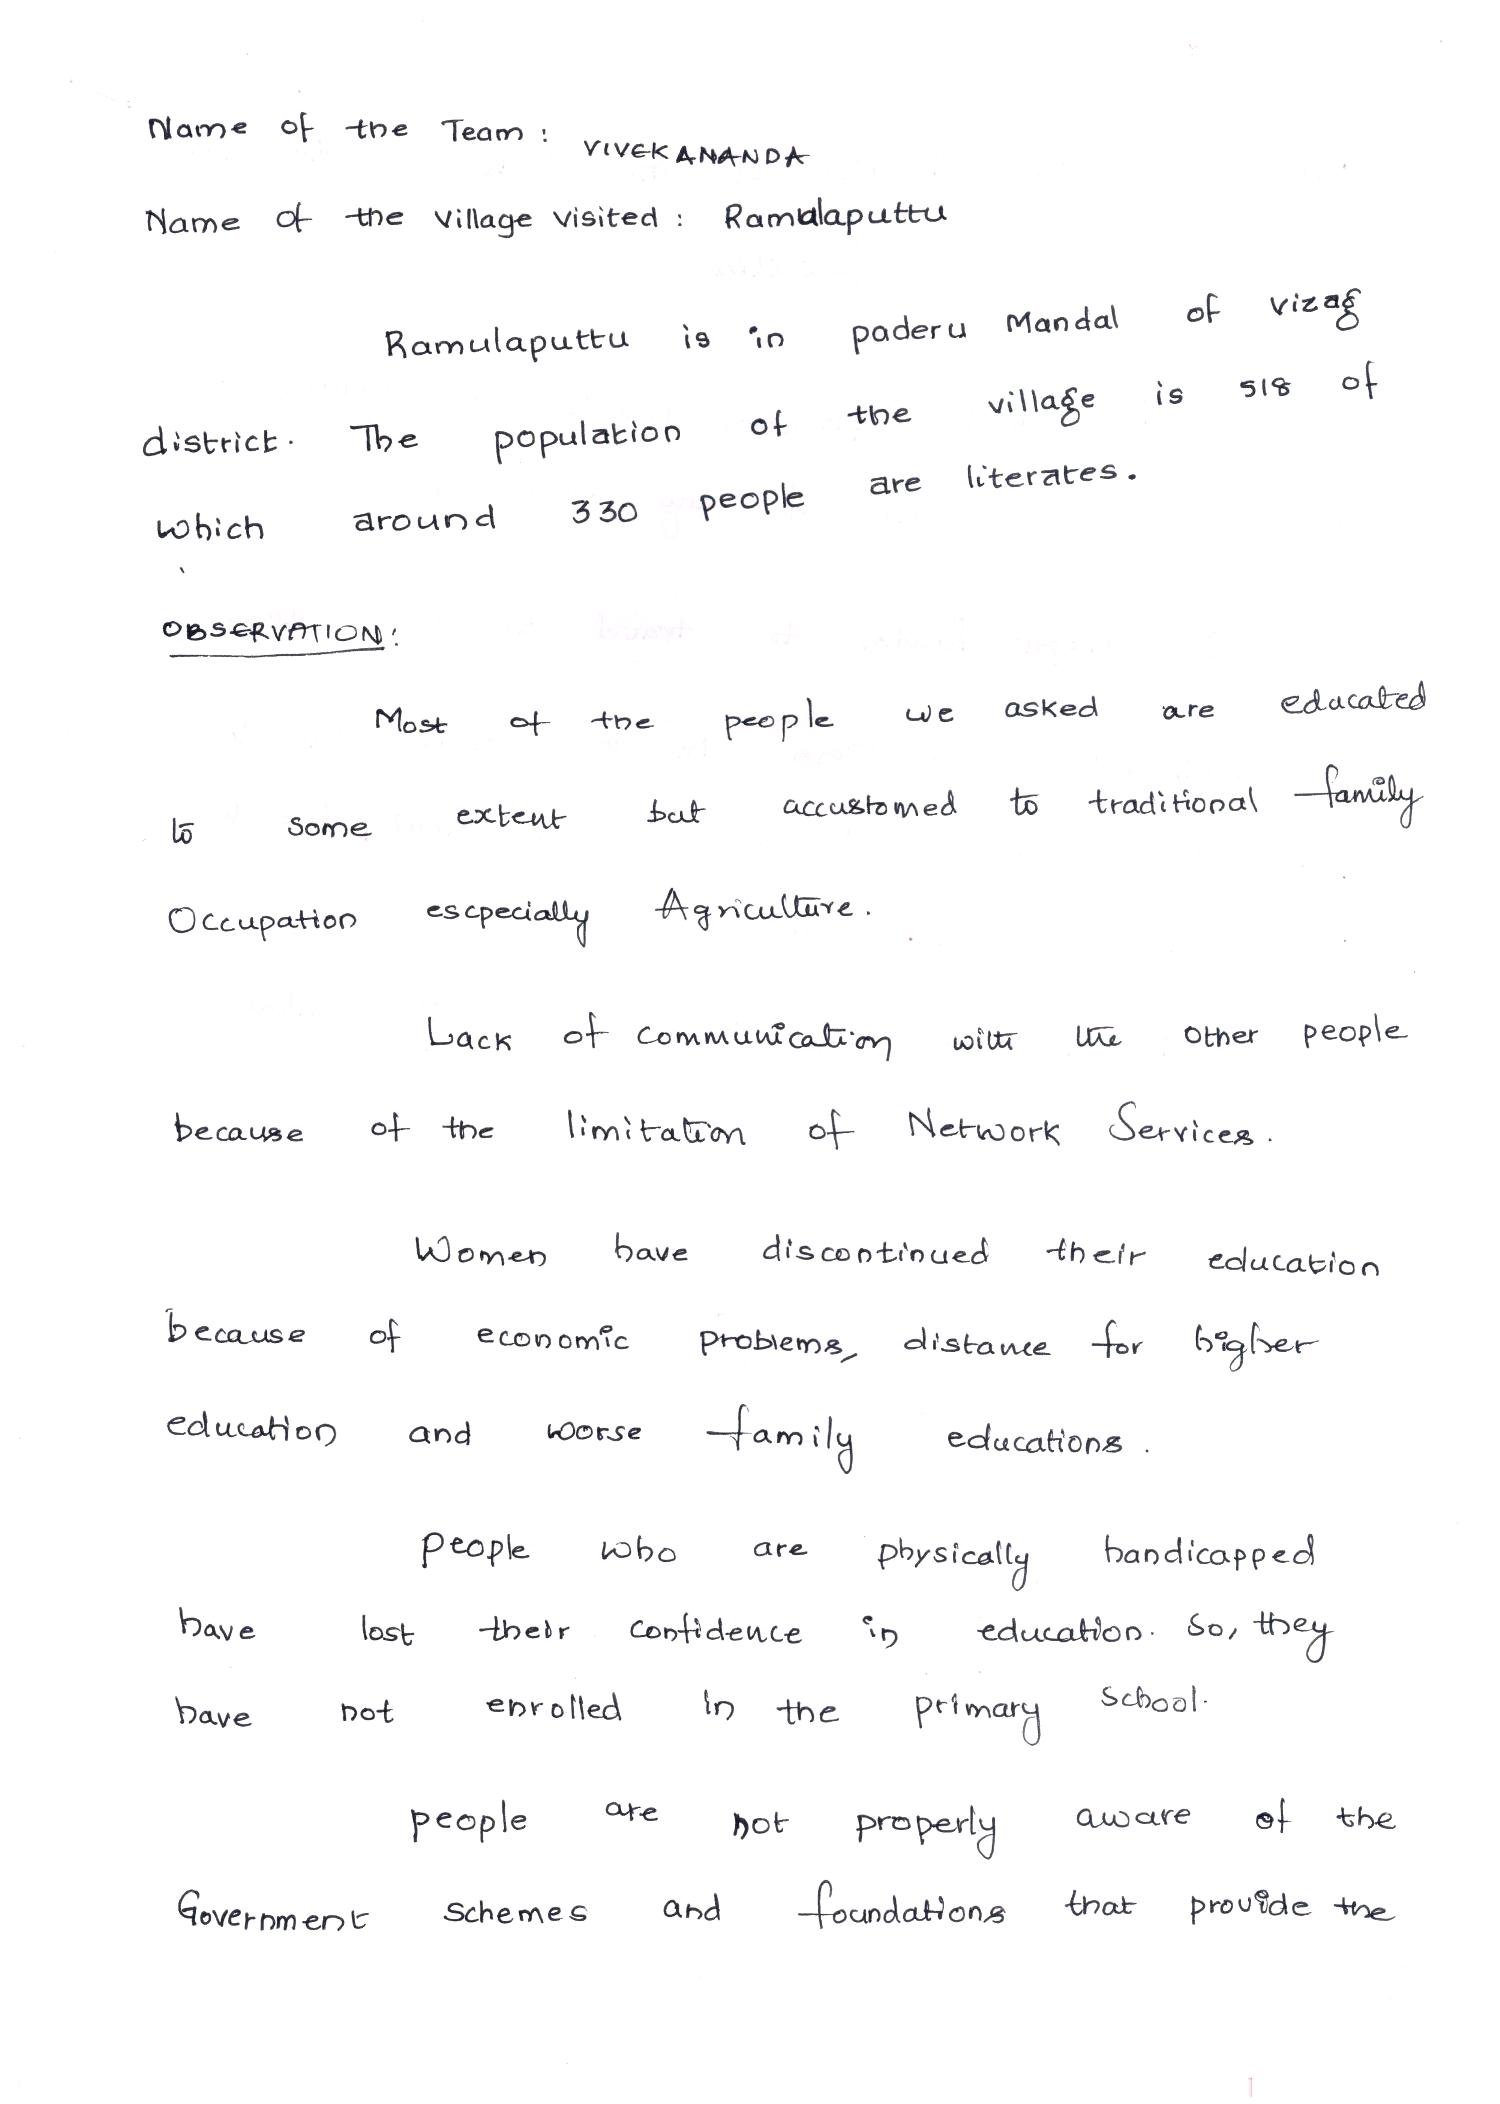 Name of the Team : VIVEKANANDA
Name of the village visited : Ramulaputtu
Ramulaputtu is in paderu Mandal of vizag
district. The population of the village is 518 of
which around 330 people are literates.
OBSERVATION:
Most of the people we asked are educated
to some extent but accustomed to traditional family
Occupation escpecially Agriculture.
Lack of communication with the other people
because of the limitation of Network Services.
Women have discontinued their education
because of economic problems, distance for higher
education and worse family educations.
People who are physically handicapped
have lost their confidence in education. So, they
have not enrolled in the primary school.
people are not properly aware of the
Government schemes and foundations that provide the